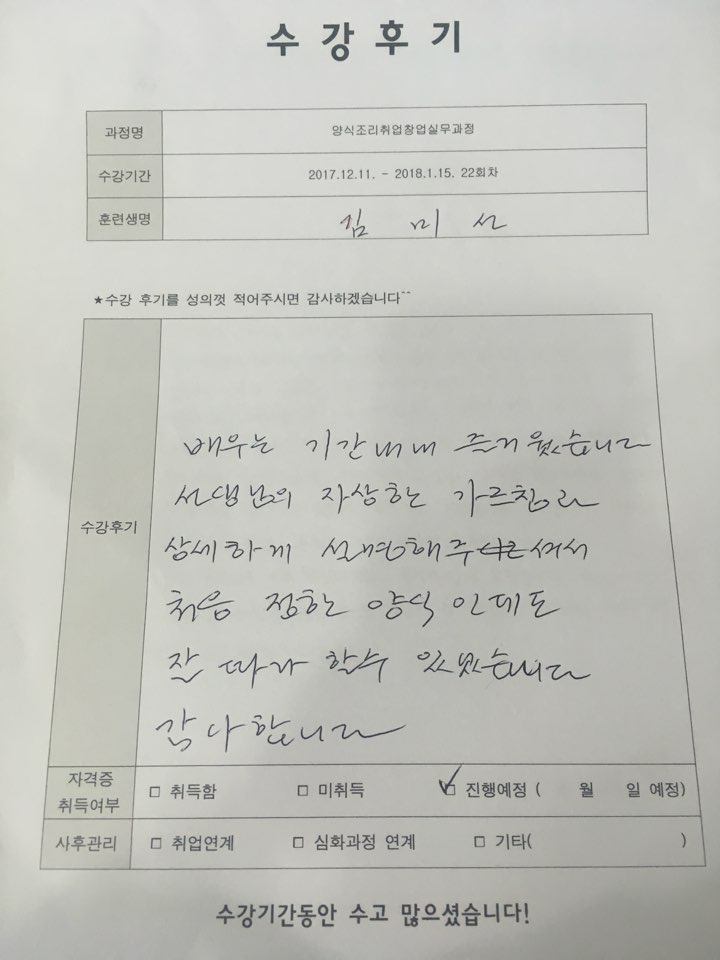 수강후기
과정명 양식조리취업창업실무과정
수강기간 2017.12.11. - 2018.1.15. 22회차
훈련생명 김 미 선
★수강 후기를 성의껏 적어주시면 감사하겠습니다^^
수강후기
배우는 기간내내 즐거웠습니다
선생님의 자상한 가르침과
상세하게 설명해주셔서
처음 접한 양식인데도
잘 따라 할수 있었습니다
감사합니다
자격증 취득여부 □ 취득함 □ 미취득 ☑ 진행예정 ( 월 일 예정)
사후관리 □ 취업연계 □ 심화과정 연계 □ 기타( )
수강기간동안 수고 많으셨습니다!